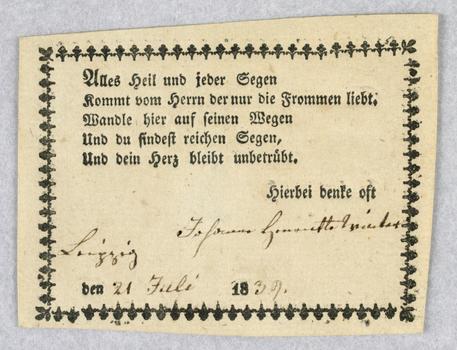 Alles Heil und jeder Segen
Kommt vom Herrn der nur die Frommen liebt.
Wandle hier auf seinen Wegen
Und du findest reichen Segen,
Und dein Herz bleibt unbetrübt.
Hierbei denke oft
Johanne Henriette
Leipzig
den 21 Juli 1839.